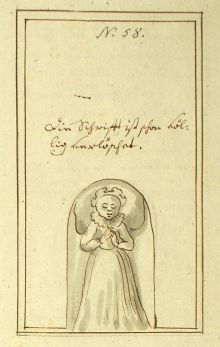 N. 58.
Die Schrifft ist schon völ-
lig verlöschet.